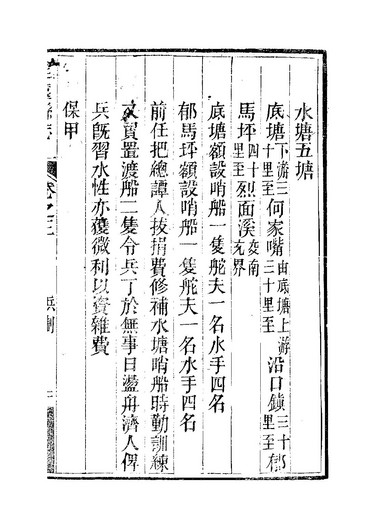 水塘五塘
底塘下游三十里至何家嘴由底塘上游三十里至沿口鎮三十里至郁
馬坪四十里至烈面溪交南充界
底塘額設哨船一隻舵夫一名水手四名
郁馬坪額設哨船一隻舵夫一名水手四名
前任把總譚人拔捐費修補水塘哨船時勤訓練
又買置渡船二隻令兵丁於無事日盪舟濟人俾
兵旣習水性亦獲微利以資雜費
保甲
卷之三 兵制